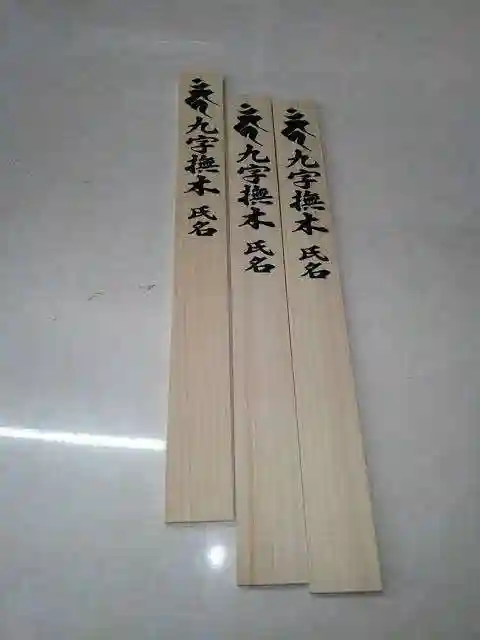 九字撫木 氏名
九字撫木 氏名
九字撫木 氏名